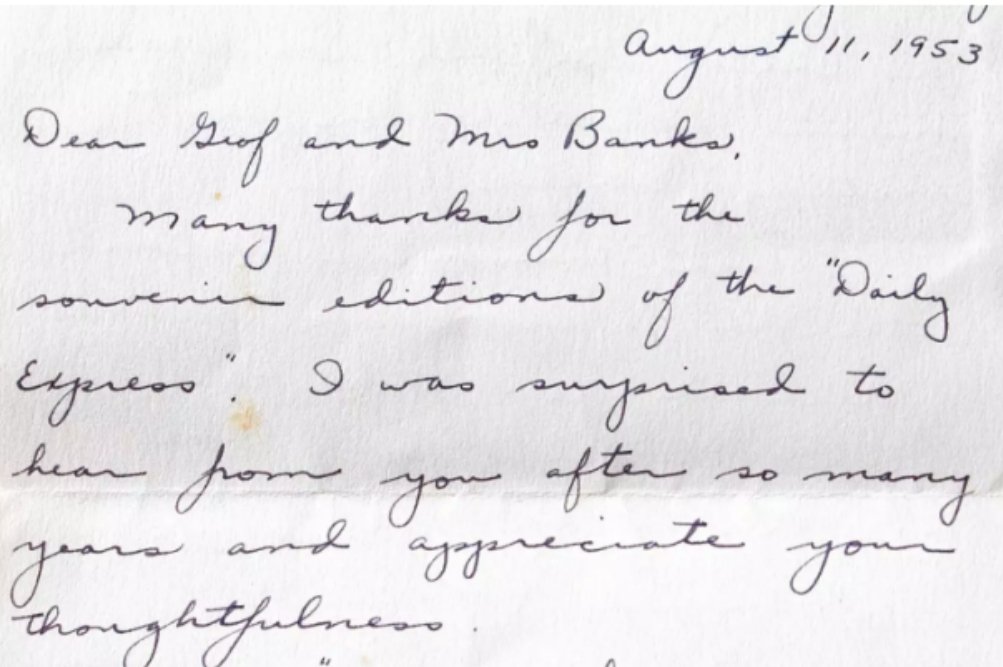 August 11, 1953
Dear Geof and Mrs Banks,
Many thanks for the
souvenir editions of the "Daily
Express". I was surprised to
hear from you after so many
years and appreciate your
thoughtfulness.